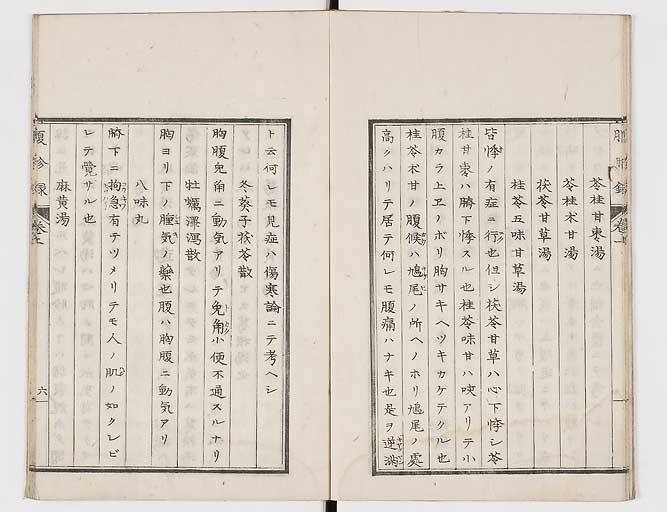 苓桂甘棗湯
苓桂朮甘湯
茯苓甘草湯
桂苓五味甘草湯
皆悸ノ有症ニ行也但シ茯苓甘草ハ心下悸シ苓
桂甘棗ハ臍下悸スル也桂苓味甘ハ咳アリテ小
腹カラ上エノボリ胸サキヘツキカケテクル也
桂苓朮甘ノ腹候ハ鳩尾ノ所ヘノホリ鳩尾ノ處
高クハリテ居テ何レモ腹痛ハナキ也是ヲ逆満
ト云何レモ見症ハ傷寒論ニテ考ヘシ
冬葵子茯苓散
胸腹兎角ニ動気アリテ兎角小便不通スルナリ
牡蠣澤瀉散
胸ヨリ下ノ腫気ノ藥也腹ハ胸腹ニ動気アリ
八味丸
臍下ニ拘急有テツメリテモ人ノ肌ノ如クシビ
レテ覺サル也
麻黄湯
腹診録
巻上
六